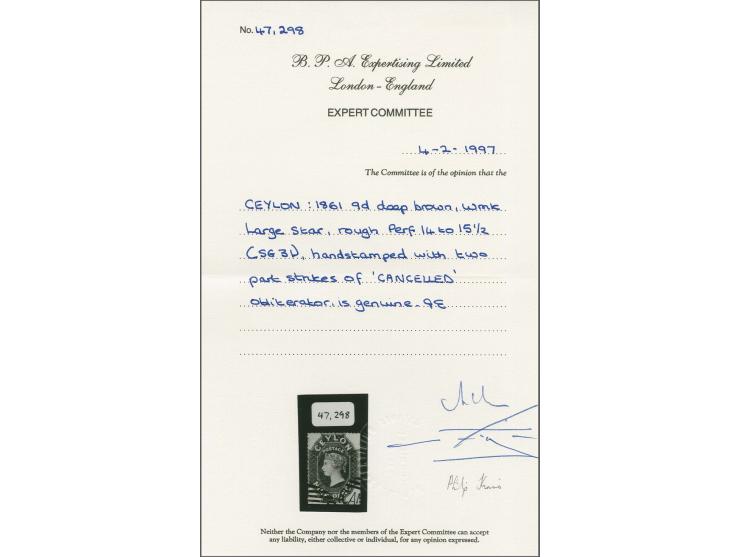 No. 47,298
B. P. A. Expertising Limited
London - England
EXPERT COMMITTEE
4-2-1997
The Committee is of the opinion that the
CEYLON: 1861 9d deep brown, wmk
Large Star, rough Perf 14 to 15½
(SG 31), handstamped with two
part strikes of 'CANCELLED'
obliterator, is genuine.
47,298
CEYLON
POSTAGE
Philip
Neither the Company nor the members of the Expert Committee can accept
any liability, either collective or individual, for any opinion expressed.